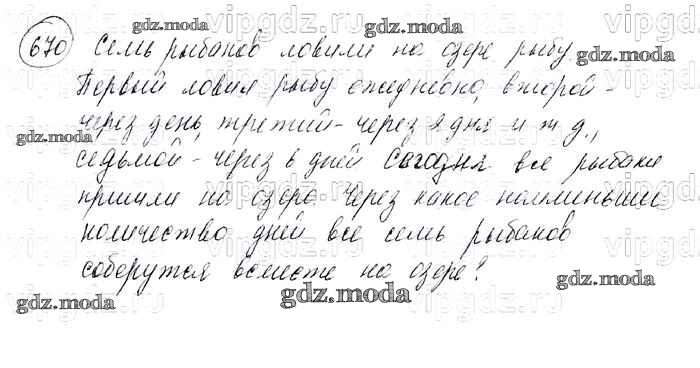 670 Семь рыбаков ловили на озере рыбу.
Первый ловил рыбу ежедневно, второй -
через день, третий - через 2 дня и т. д.,
седьмой - через 6 дней Сегодня все рыбаки
пришли на озеро. Через какое наименьшее
количество дней все семь рыбаков
соберутся вместе на озере?
gdz.moda
vipgdz.ru